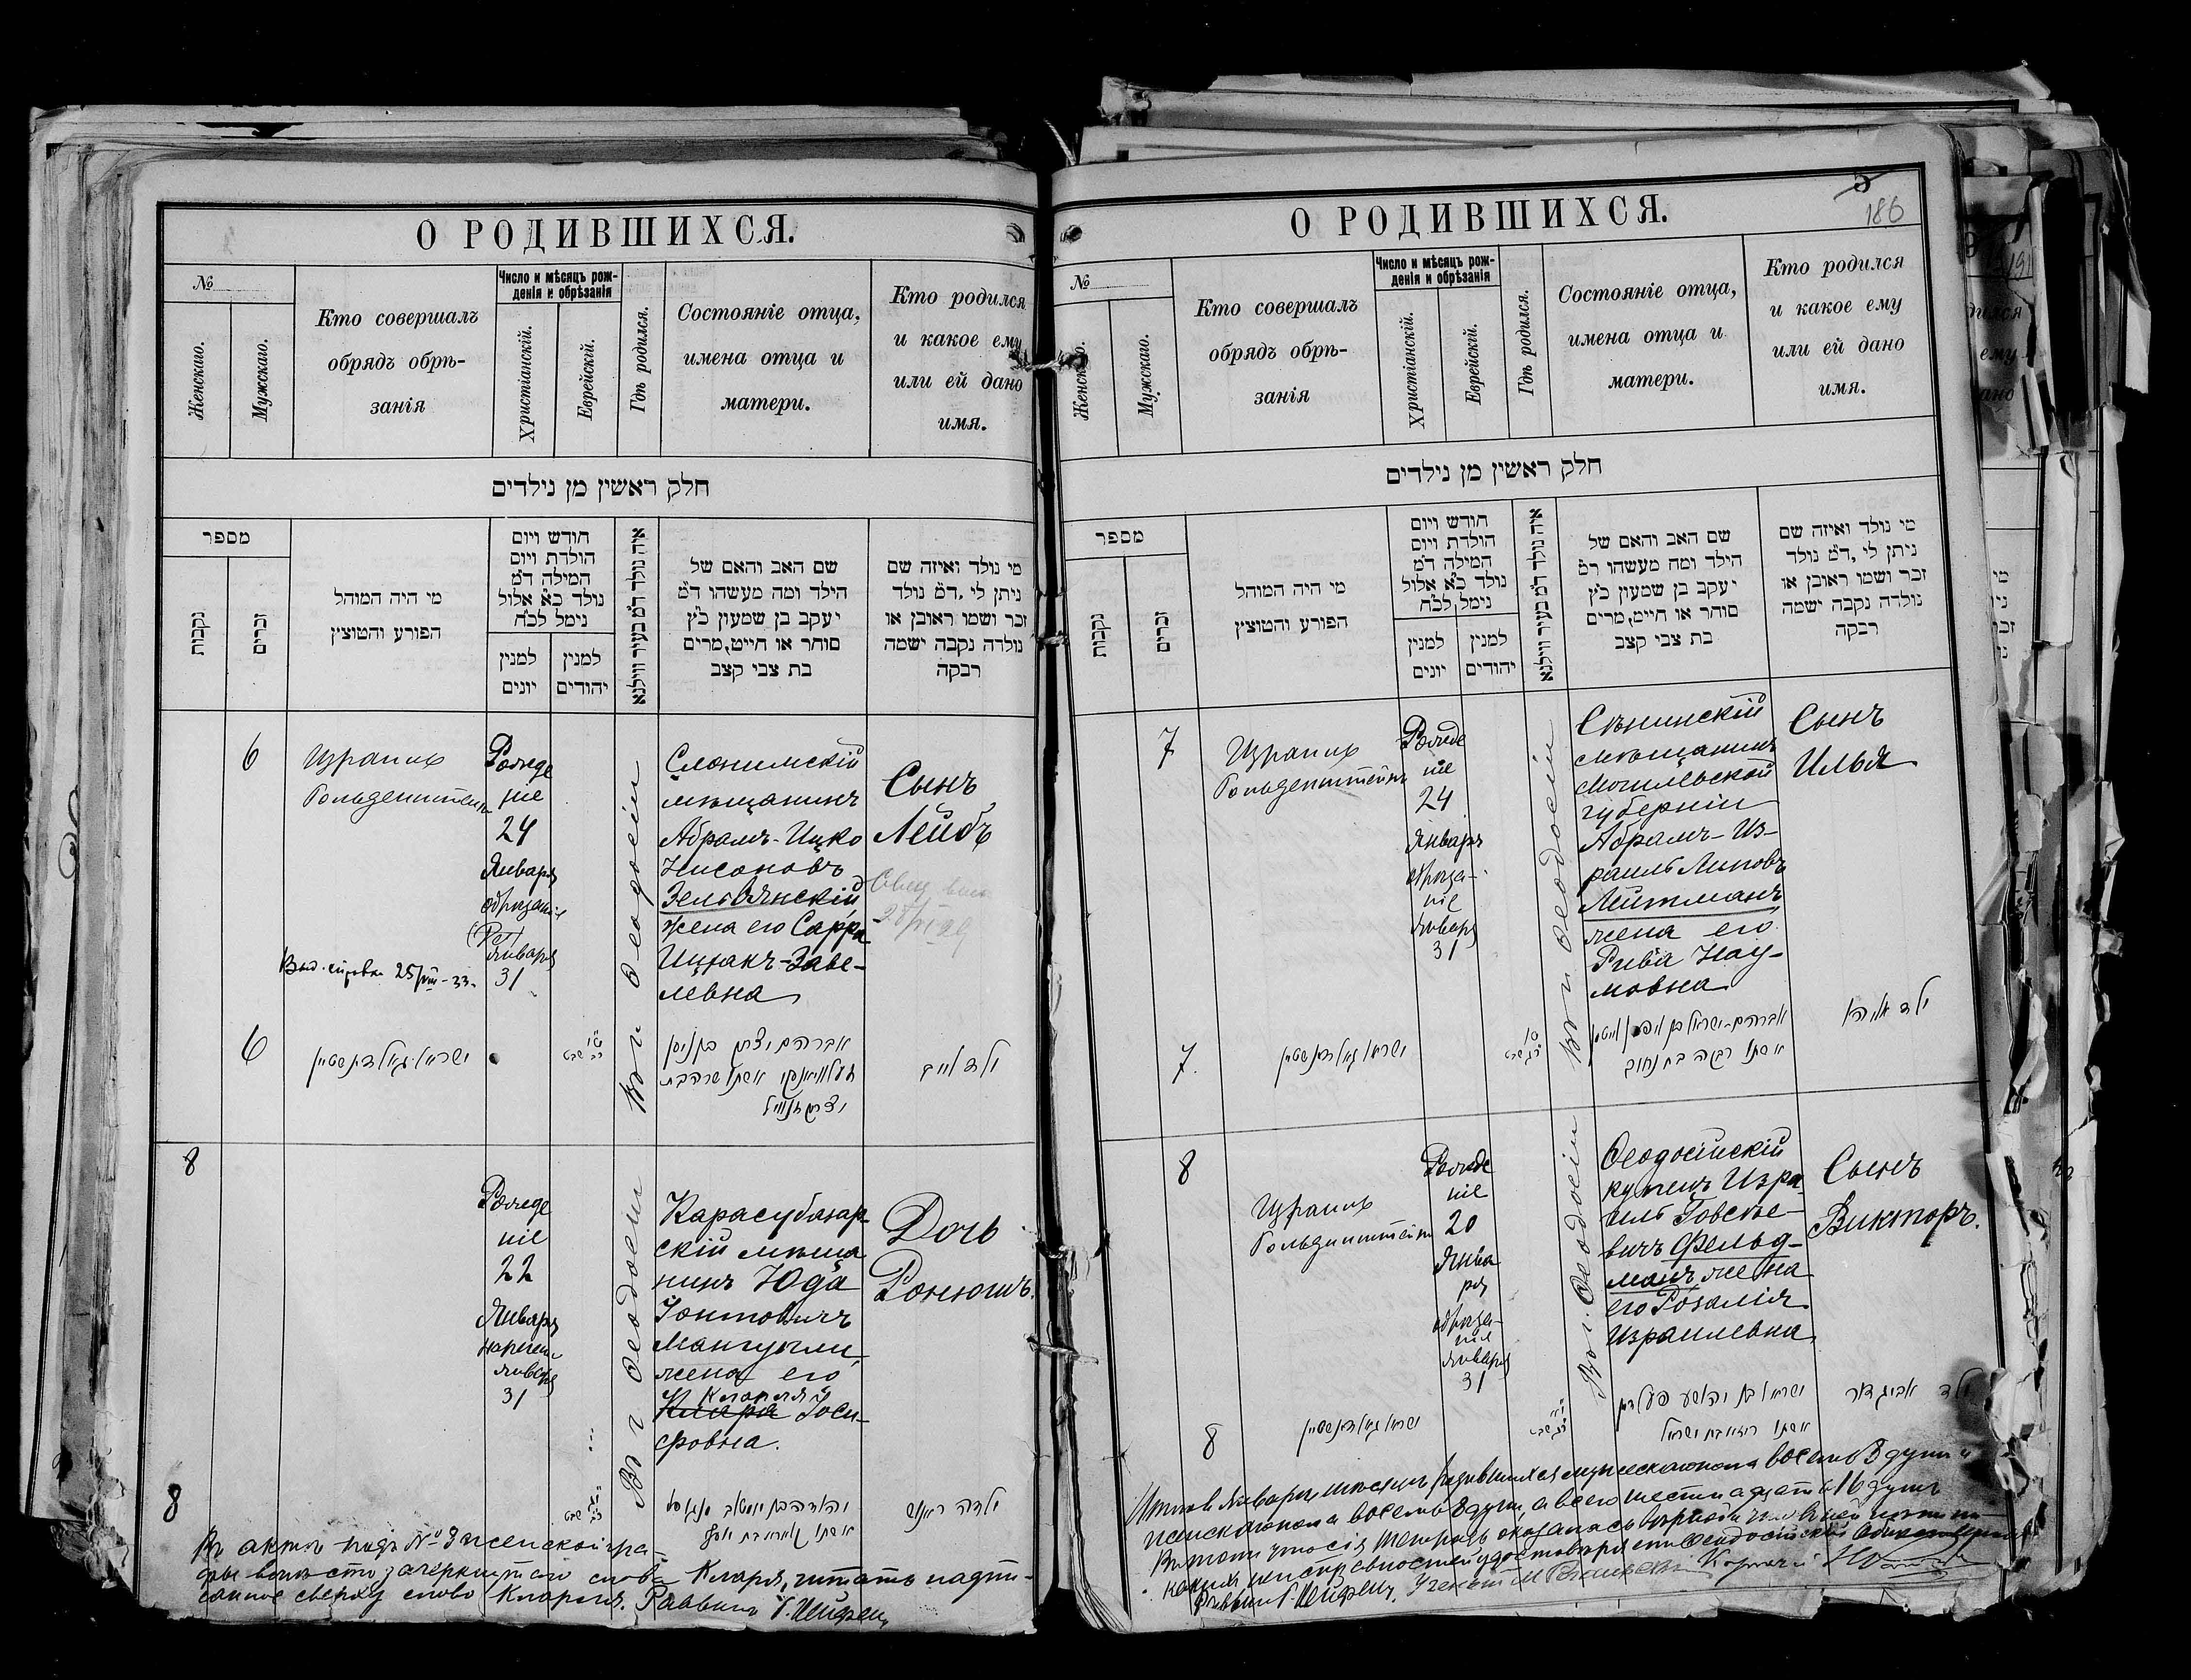 О РОДИВШИХСЯ.
№
Женскаго.
Мужскаго.
Кто совершалъ
обрядъ обрѣ-
занія
Число и мѣсяцъ рож-
денія и обрѣзанія
Христіанскій.
Еврейскій.
Гдѣ родился.
Состояніе отца,
имена отца и
матери.
Кто родился
и какое ему
или ей дано
имя.
חלק ראשין מן נילדים
מספר
נקבות
זכרים
מי היה המוהל
הפורע והמוצץ
חודש ויום
הולדת ויום
המילה ד״מ
נולד כ״א אלול
נימל לכ״ח
למנין
יונים
למנין
יהודים
איה נולד ד״מ בעיר ווילנא
שם האב והאם של
הילד ומה מעשהו ד״מ
יעקב בן שמעון כ״ץ
סוחר או חייט, מרים
בת צבי קצב
מי נולד ואיזה שם
ניתן לי, ד״מ נולד
זכר ושמו ראובן או
נולדה נקבה ישמה
רבקה
6
Израиль
Гольденштейнъ
Рожде
ніе
24
Января
обрѣзаніе
Января
31
Выд. справка 25/VIII-33
Въ г. Ѳеодосіи
Слонимскій
мѣщанинъ
Абрамъ-Ицко
Нисоновъ
Зельвянскій
жена его Сарра
Ицхакъ-Заве-
левна
Сынъ
Лейбъ
6
ישראל גאלדענשטיין
אברהם יצחק בן ניסן
זעלוויאנסקי אשתו שרה בת
ילד לייב
8
Рожде
ніе
22
Января
наречен
Января
31
Въ г. Ѳеодосіи
Карасубазар-
скій мѣща
нинъ Юда
Іомтовичъ
Мангупли,
жена его
Клара Іоси-
фовна.
Дочь
8
Въ актѣ подъ № 8 женской гра-
фы вмѣсто зачеркнутаго слова Клара, читать надпи-
санное сверху слово Раввинъ
О РОДИВШИХСЯ.
5
186
№
Женскаго.
Мужскаго.
Кто совершалъ
обрядъ обрѣ-
занія
Число и мѣсяцъ рож-
денія и обрѣзанія
Христіанскій.
Еврейскій.
Гдѣ родился.
Состояніе отца,
имена отца и
матери.
Кто родился
и какое ему
или ей дано
имя.
חלק ראשין מן נילדים
מספר
נקבות
זכרים
מי היה המוהל
הפורע והמוצץ
חודש ויום
הולדת ויום
המילה ד״מ
נולד כ״א אלול
נימל לכ״ח
למנין
יונים
למנין
יהודים
איה נולד ד״מ בעיר ווילנא
שם האב והאם של
הילד ומה מעשהו ד״מ
יעקב בן שמעון כ״ץ
סוחר או חייט, מרים
בת צבי קצב
מי נולד ואיזה שם
ניתן לי, ד״מ נולד
זכר ושמו ראובן או
נולדה נקבה ישמה
רבקה
7
Израиль
Гольденштейнъ
Рожде
ніе
24
Января
обрѣза-
ніе
Января
31
Въ г. Ѳеодосіи
Сѣнинскій
мѣщанинъ
Могилевской
губерніи
Абрамъ-Из-
раиль Липовъ
Лейтманъ
жена его
Рива Нау-
мовна
Сынъ
Илья
7.
ישראל גאלדענשטיין
אשתו רבקה בת נחום
ילד אליהו
8
Израиль
Гольденштейнъ
Рожде
ніе
20
Янва
ря
обрѣза-
ніе
Января
31
Въ г. Ѳеодосіи
Ѳеодосійскій
купецъ Изра-
иль Говсѣе-
вичъ Фельд-
манъ жена
его Розалія
Израилевна
Сынъ
Викторъ.
8
ישראל גאלדענשטיין
ישראל בן יהושע פעלדמן
אשתו רוזא בת ישראל
ילד אביגדור
Итого въ Январѣ мѣсяцѣ родившихся мужескаго пола восемь 8 душъ и
женскаго пола восемь 8 душъ, а всего шестнадцать 16 душъ